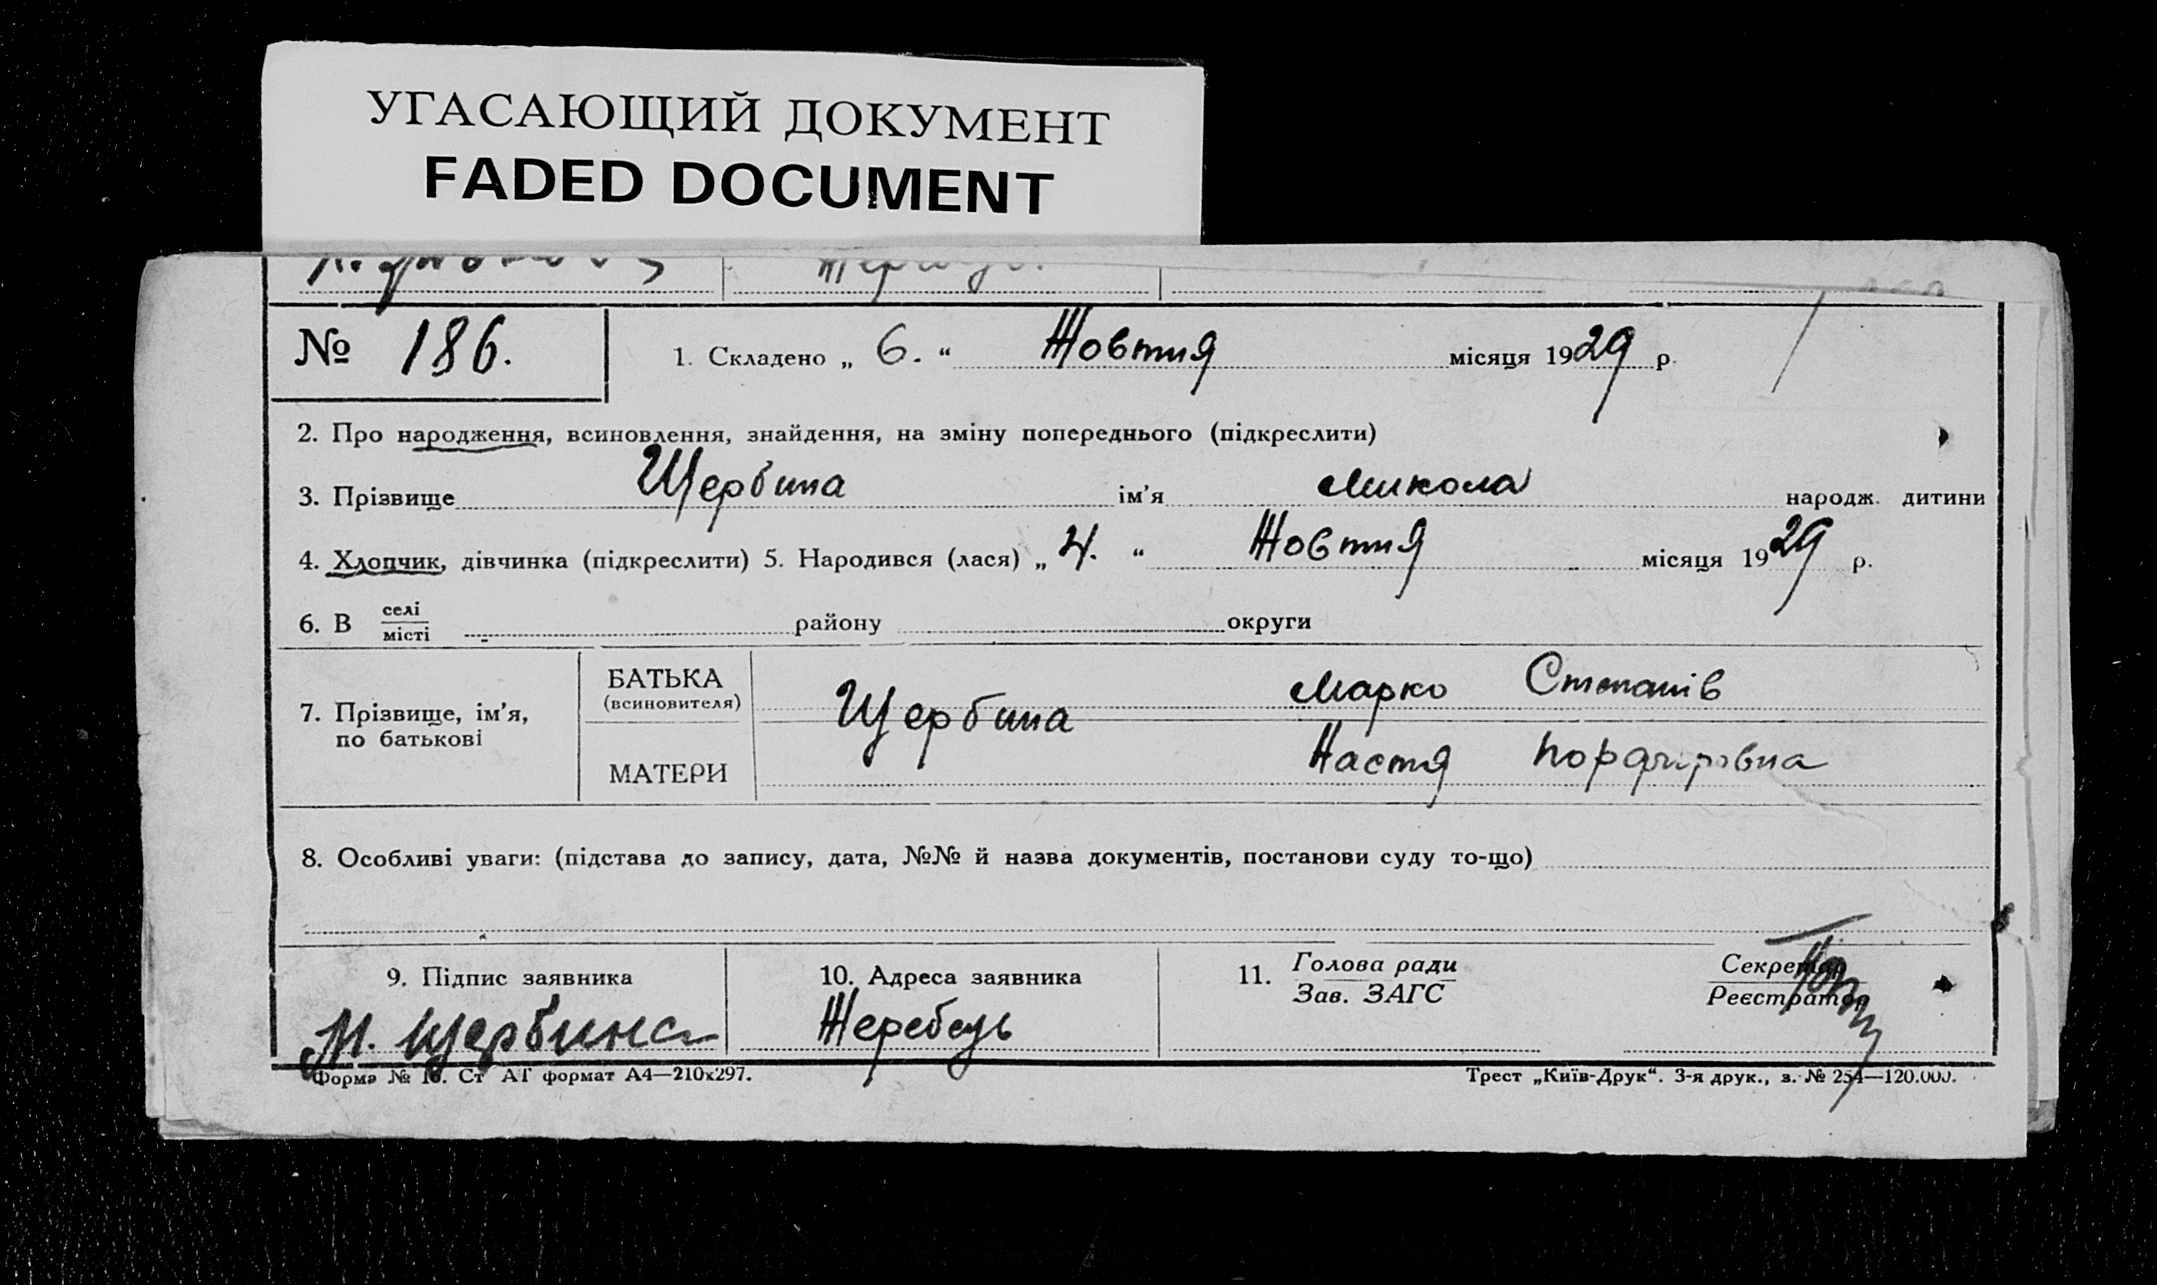 УГАСАЮЩИЙ ДОКУМЕНТ
FADED DOCUMENT
№ 186. 1. Складено „ 6. “ Жовтня місяця 1929 р.
2. Про народження, всиновлення, знайдення, на зміну попереднього (підкреслити)
3. Прізвище Щербина ім’я Микола народж. дитини
4. Хлопчик, дівчинка (підкреслити) 5. Народився (лася) „ 4. “ Жовтня місяця 1929 р.
6. В селі
місті району округи
7. Прізвище, ім’я,
по батькові
БАТЬКА
(всиновителя)
Щербина Марко Степанів
МАТЕРИ
Настя Порфирівна
8. Особливі уваги: (підстава до запису, дата, №№ й назва документів, постанови суду то-що)
9. Підпис заявника
М. Щербина
10. Адреса заявника
11. Голова ради
Зав. ЗАГС
Секретар
Реєстратор
Форма № 16. Ст АГ формат А4—210х297.
Трест „Київ-Друк“. 3-я друк., з. № 254—120.000.